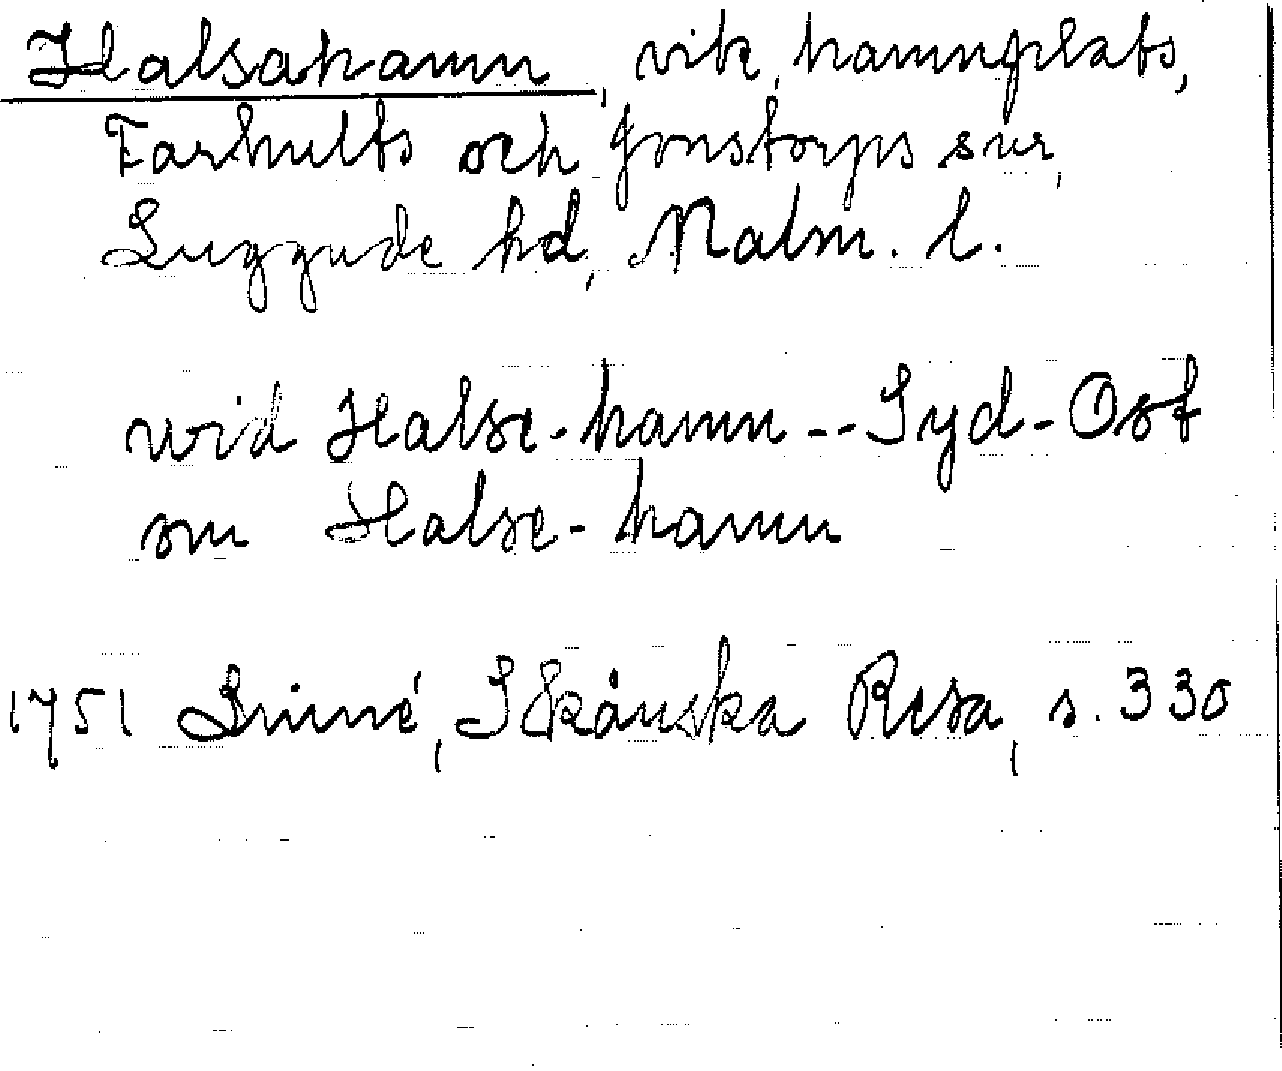 Halsahamn, vik, hamnplats,
Farhults och Jonstorps snr,
Luggude hd, Malm. l.
wid Halse-hamn -- Syd-Ost
om Halse-hamn
1751 Linné, Skånska Resa, s. 330